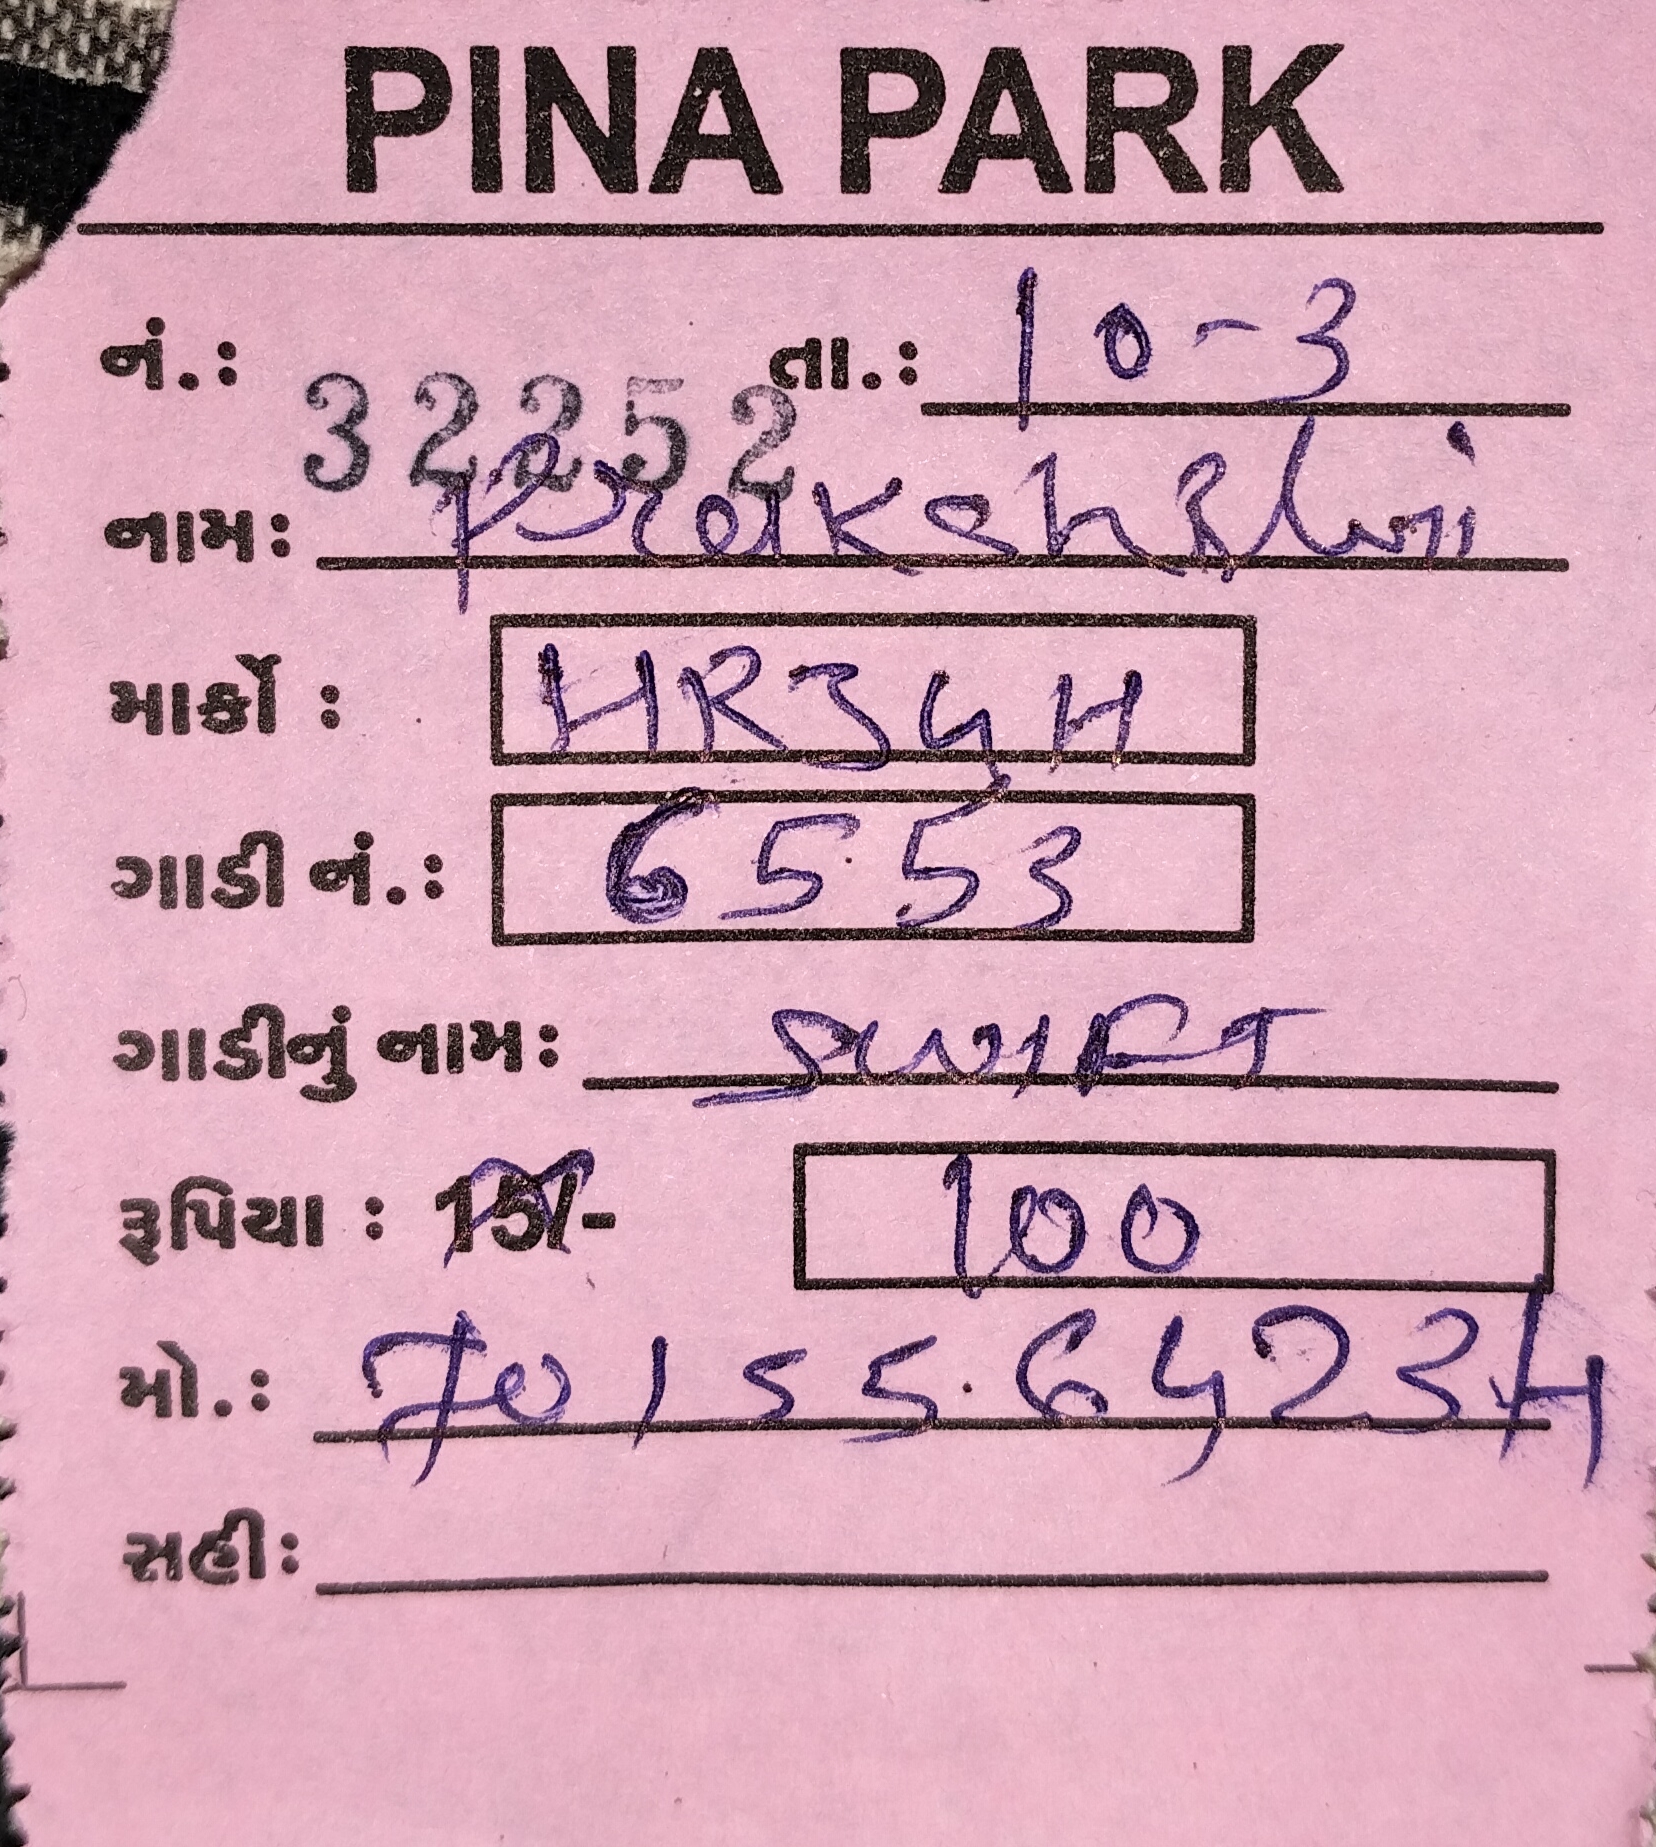 PINA PARK
નં.: 32252 તા.: 10-3
નામ: Prakash
માર્કો : HR34H
ગાડી નં.: 6553
ગાડીનું નામ: SWIFT
રૂપિયા : 15/- 100
મો.: 7015564234
સહી: